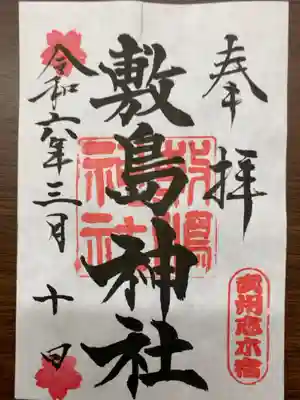 奉拝
敷島神社
令和六年三月十日
敷嶋
神社
武州志木宿